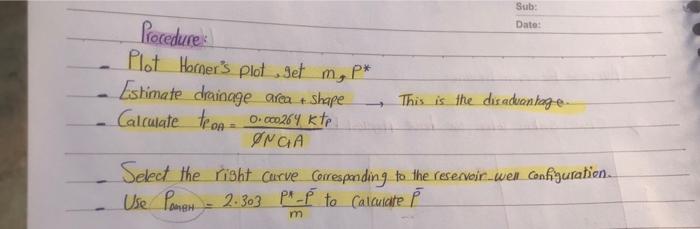 Sub:
Date:
Procedure:
- Plot Horner's plot, get m, P*
- Estimate drainage area + shape → This is the disadvantage.
- Calculate tpDA = 0.000264 K tp / ØMCtA
- Select the right curve corresponding to the reservoir-well configuration.
- Use PDMBH = 2.303 (P* - P̄) / m to Calculate P̄